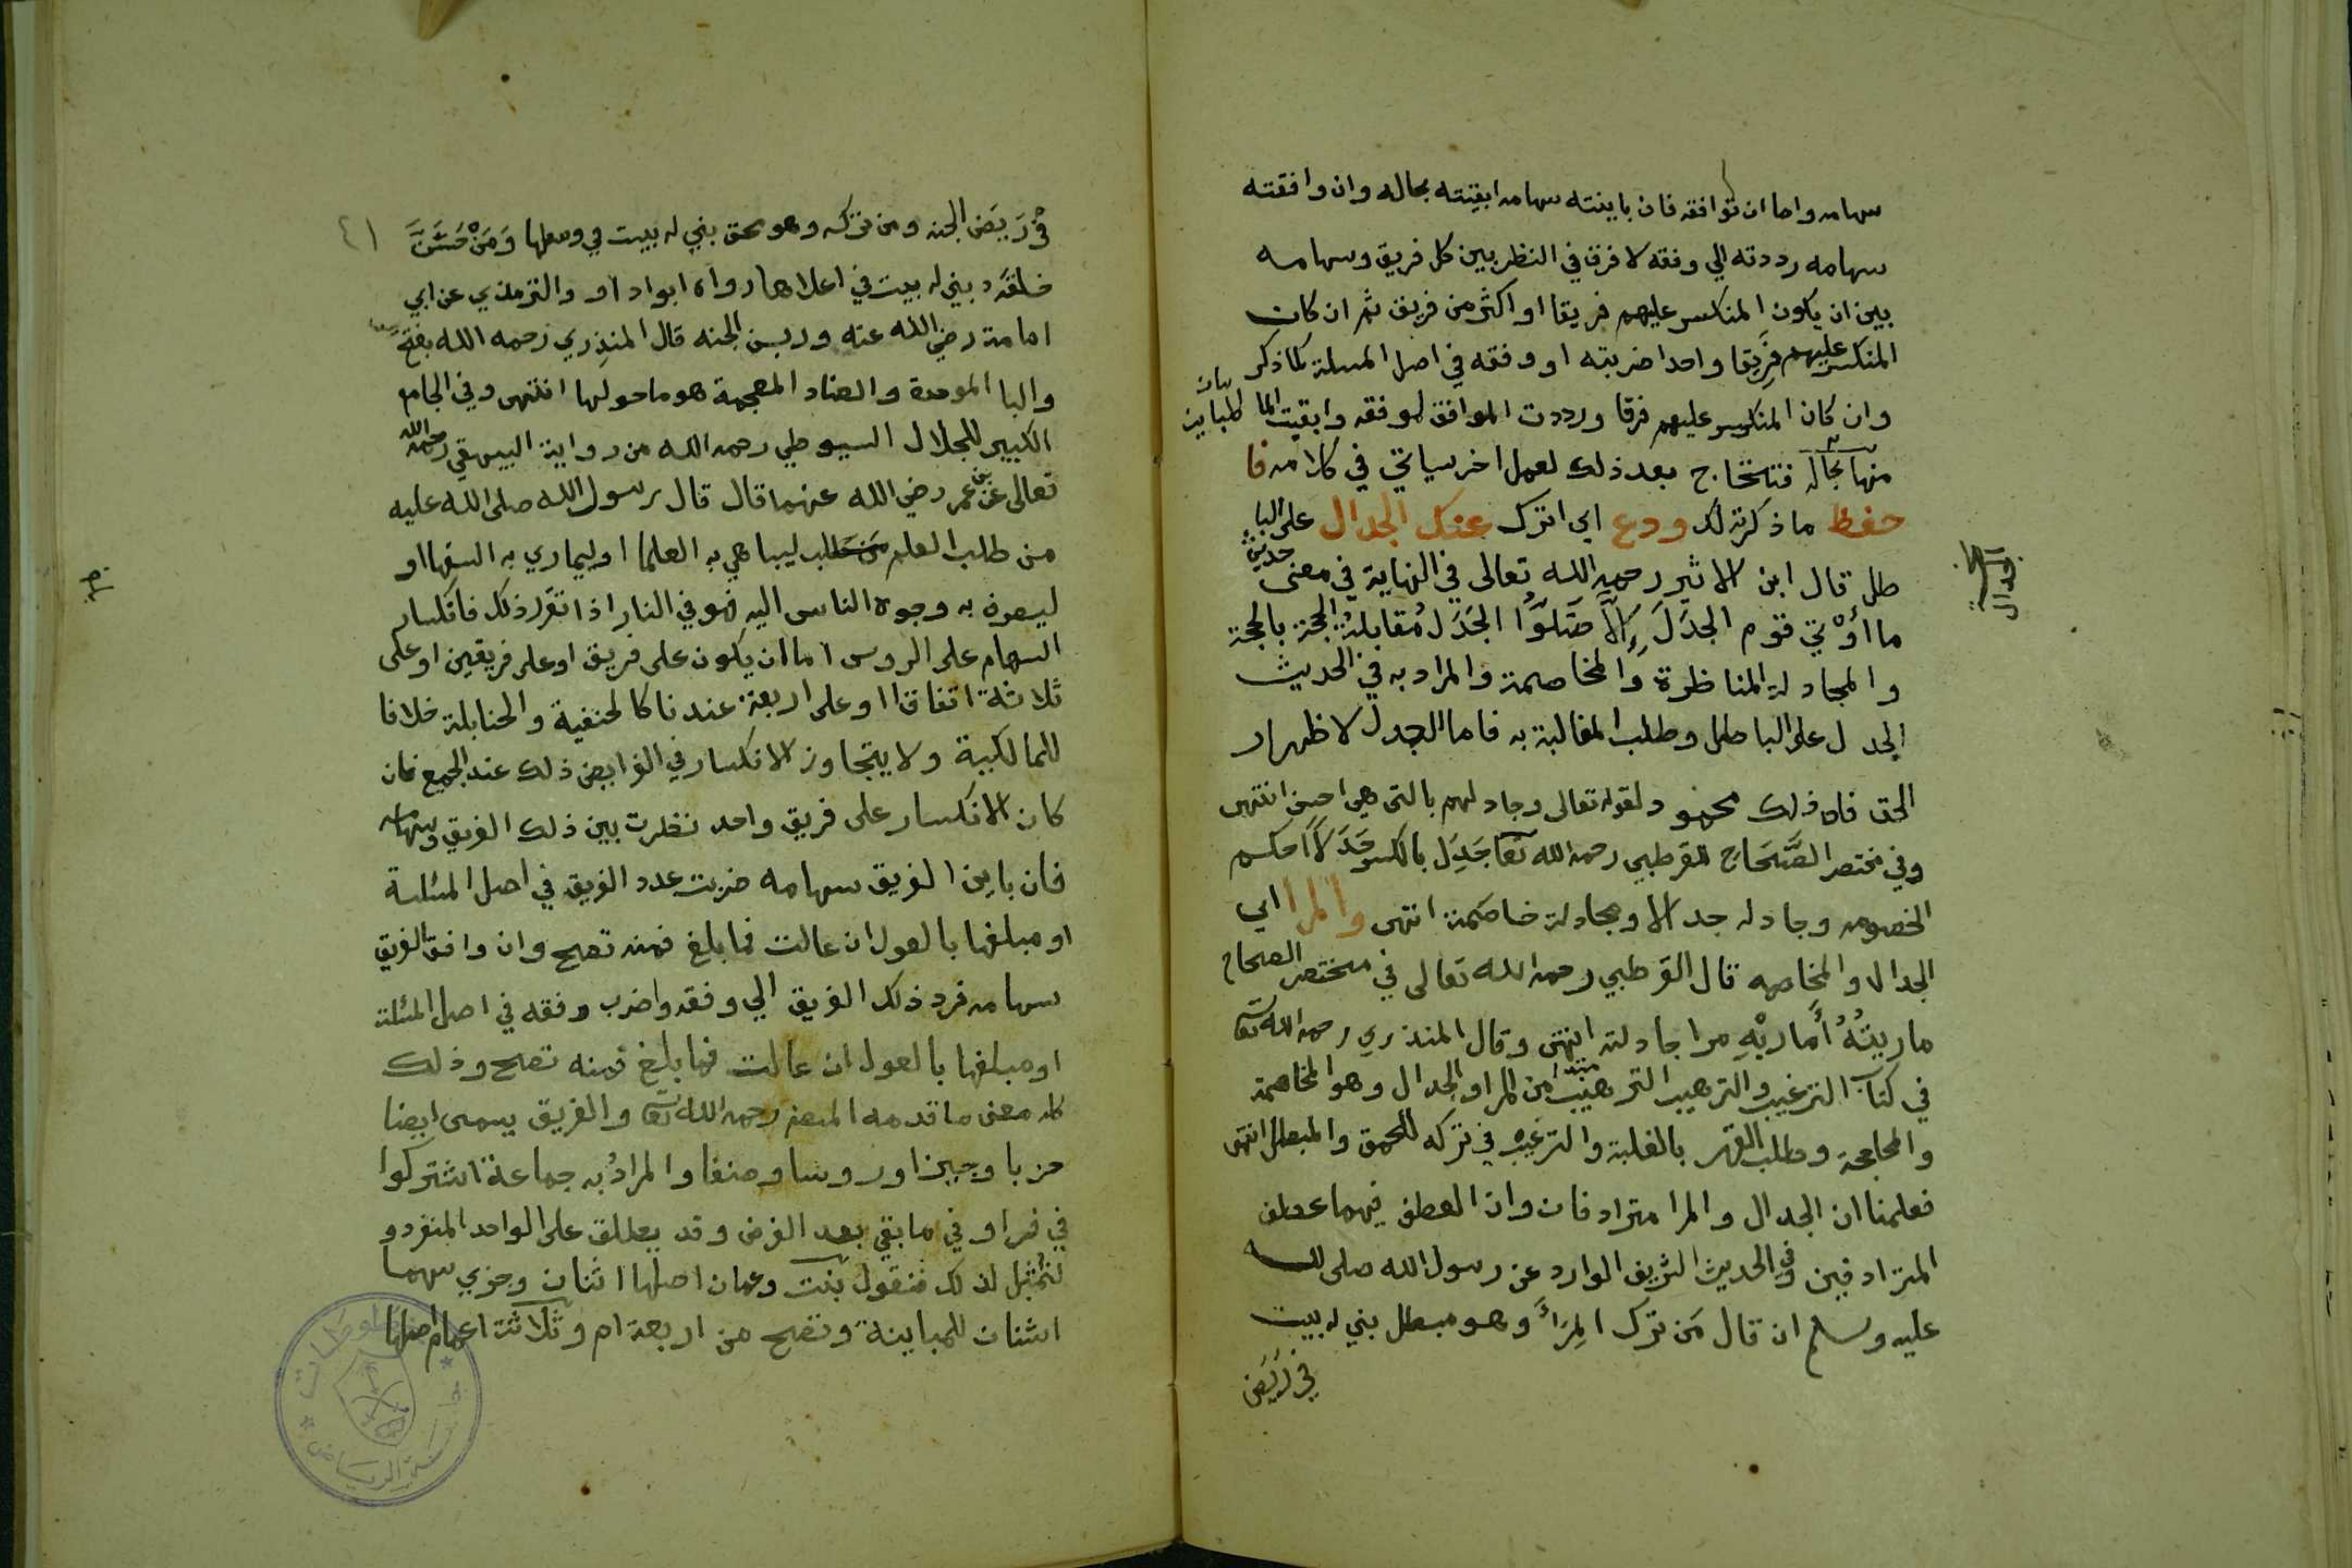 سهامه واما ان توافقه فان باينته سهامه ابقيته بحاله وان وافقته
سهامه رددته الي وفقه لا فرق في النظر بين كل فريق وسهامه
بين ان يكون المنكسر عليهم فريقا او اكثر من فريق ثم ان كان
المنكسر عليهم فريقا واحدا ضربته او وفقه في اصل المسلة كما ذكر
وان كان المنكسر عليهم فرقا ورددت الموافق لوفقه وابقيت المباين
منها بحاله فتحتاج بعد ذلك لعمل اخر سياتي في كلامه فا
حفظ ما ذكرته لك ودع اي اترك عنك الجدال على البا
طل قال ابن الاثير رحمه الله تعالى في النهاية في معنى حديث
ما أُوْتي قوم الجدَلَ إِلاَّ ضَلوّا الجَدَل مُقابلةُ الحجة بالحجة
والمجادلة المناظرة والمخاصمة والمراد به في الحديث
الجدل على الباطل وطلب المغالبة به فاما الجدل لاظهار
الحق فان ذلك محمود لقوله تعالى وجادلهم بالتى هي احسن انتهى
وفي مختصر الصَّحَاح للقرطبي رحمه الله تعا جَدِل بالكسر جَدَلاً احكم
الخصومه وجادله جدالا ومجادلة خاصمة انتهى والمرا اي
الجدال والمخاصمه قال القرطبي رحمه الله تعالى في مختصر الصحاح
ماريتُهُ أُماريْهِ مرا جادلته انتهى وقال المنذري رحمه الله تعا
في كتاب الترغيب والترهيب الترهيب من المرا والجدال وهو المخاصمة
والمحاججة وطلب القهر بالغلبة والترغيب في تركه للمحق والمبطل انتهى
فعلمنا ان الجدال والمرا مترادفان وان العطف فيهما عطف
المترادفين وفي الحديث الشريف الوارد عن رسول الله صلى الله
عليه وسلم ان قال مَن ترك المِرَاءَ وهو مبطل بني له بيت
في رَبَض
مبحث
الجدال
في رَبَض الجنه ومن تركه وهو محق بني له بيت في وسطها وَمَنْ حَسَّنَ
خلقه بني له بيت في اعلاها رواه ابوادود والترمذي عن ابي
امامة رضي الله عنه وربض الجنه قال المنذري رحمه الله بفتح
والبا الموحدة والضاد المعجمة هو ما حولها انتهى وفي الجامع
الكبير للجلال السيوطي رحمه الله من رواية البيهقي رحمه الله
تعالى عن بن عمر رضي الله عنهما قال قال رسول الله صلى الله عليه
من طلب العلم ليباهي به العلما او ليماري به السفها او
ليصرف به وجوه الناس اليه فهو في النار اذا تقرر ذلك فانكسار
السهام على الروس اما ان يكون على فريق او على فريقين او على
ثلاثة اتفاقا او على اربعة عندنا كالحنفية والحنابلة خلافا
للمالكية ولا يتجاوز الانكسار في الفرايض ذلك عند الجميع فان
كان الانكسار على فريق واحد نظرت بين ذلك الفريق وسهامه
فان باين الفريق سهامه ضربت عدد الفريق في اصل المسئلة
او مبلغها بالعول ان عالت فما بلغ فمنه تصح وان وافق الفريق
سهامه فرد ذلك الفريق الي وفقه واضرب وفقه في اصل المسئلة
او مبلغها بالعول ان عالت فما بلغ فمنه تصح وذلك
كله معنى ما قدمه المصنف رحمه الله تعا والفريق يسمى ايضا
حزبا وحيزا وروسا وصنفا والمرادُ به جماعة اشتركوا
في فرض او في ما بقي بعد الفرض وقد يطلق على الواحد المنفرد و
لنُمثِّل لذلك فنقول بنت وعمان اصلها اثنان وجزي سهمها
اثنان للمباينة وتصح من اربعة ام وثلاثة اعمام اصلها
٤١